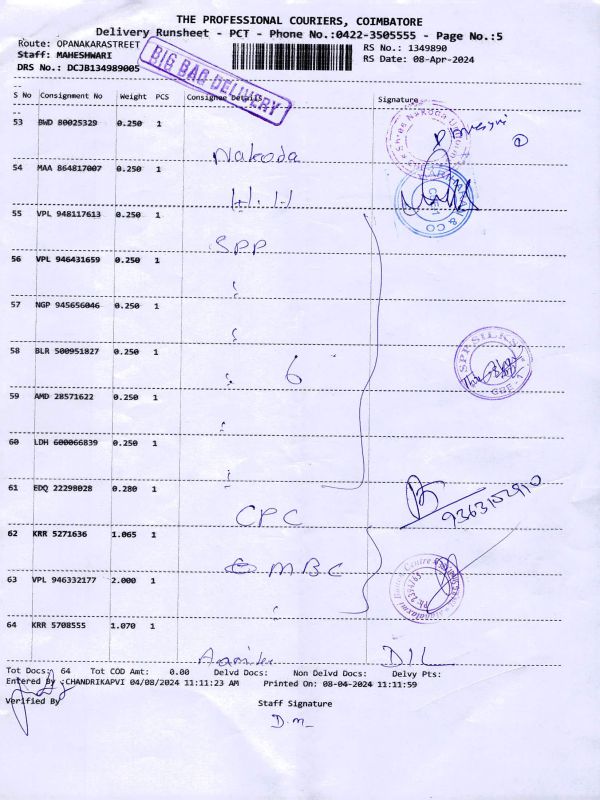 THE PROFESSIONAL COURIERS, COIMBATORE
Delivery Runsheet - PCT - Phone No.:0422-3505555 - Page No.:5
Route: OPANAKARASTREET RS No.: 1349890
Staff: MAHESHWARI RS Date: 08-Apr-2024
DRS No.: DCJB134989005
BIG BAG DELIVERY
S No Consignment No Weight PCS Consignee Details Signature
53 BWD 80025329 0.250 1
Nakoda
54 MAA 864817007 0.250 1
H.H
55 VPL 948117613 0.250 1
SPP
56 VPL 946431659 0.250 1
57 NGP 945656046 0.250 1
58 BLR 500951827 0.250 1
6
SPP SILKS
CBE - 1
59 AMD 28571622 0.250 1
60 LDH 600066839 0.250 1
61 EDQ 22298028 0.280 1
CPC
9363102910
62 KRR 5271636 1.065 1
MBC
63 VPL 946332177 2.000 1
64 KRR 5708555 1.070 1
Tot Docs: 64 Tot COD Amt: 0.00 Delvd Docs: Non Delvd Docs: Delvy Pts:
Entered By :CHANDRIKAPVI 04/08/2024 11:11:23 AM Printed On: 08-04-2024 11:11:59
Verified By Staff Signature
D.M